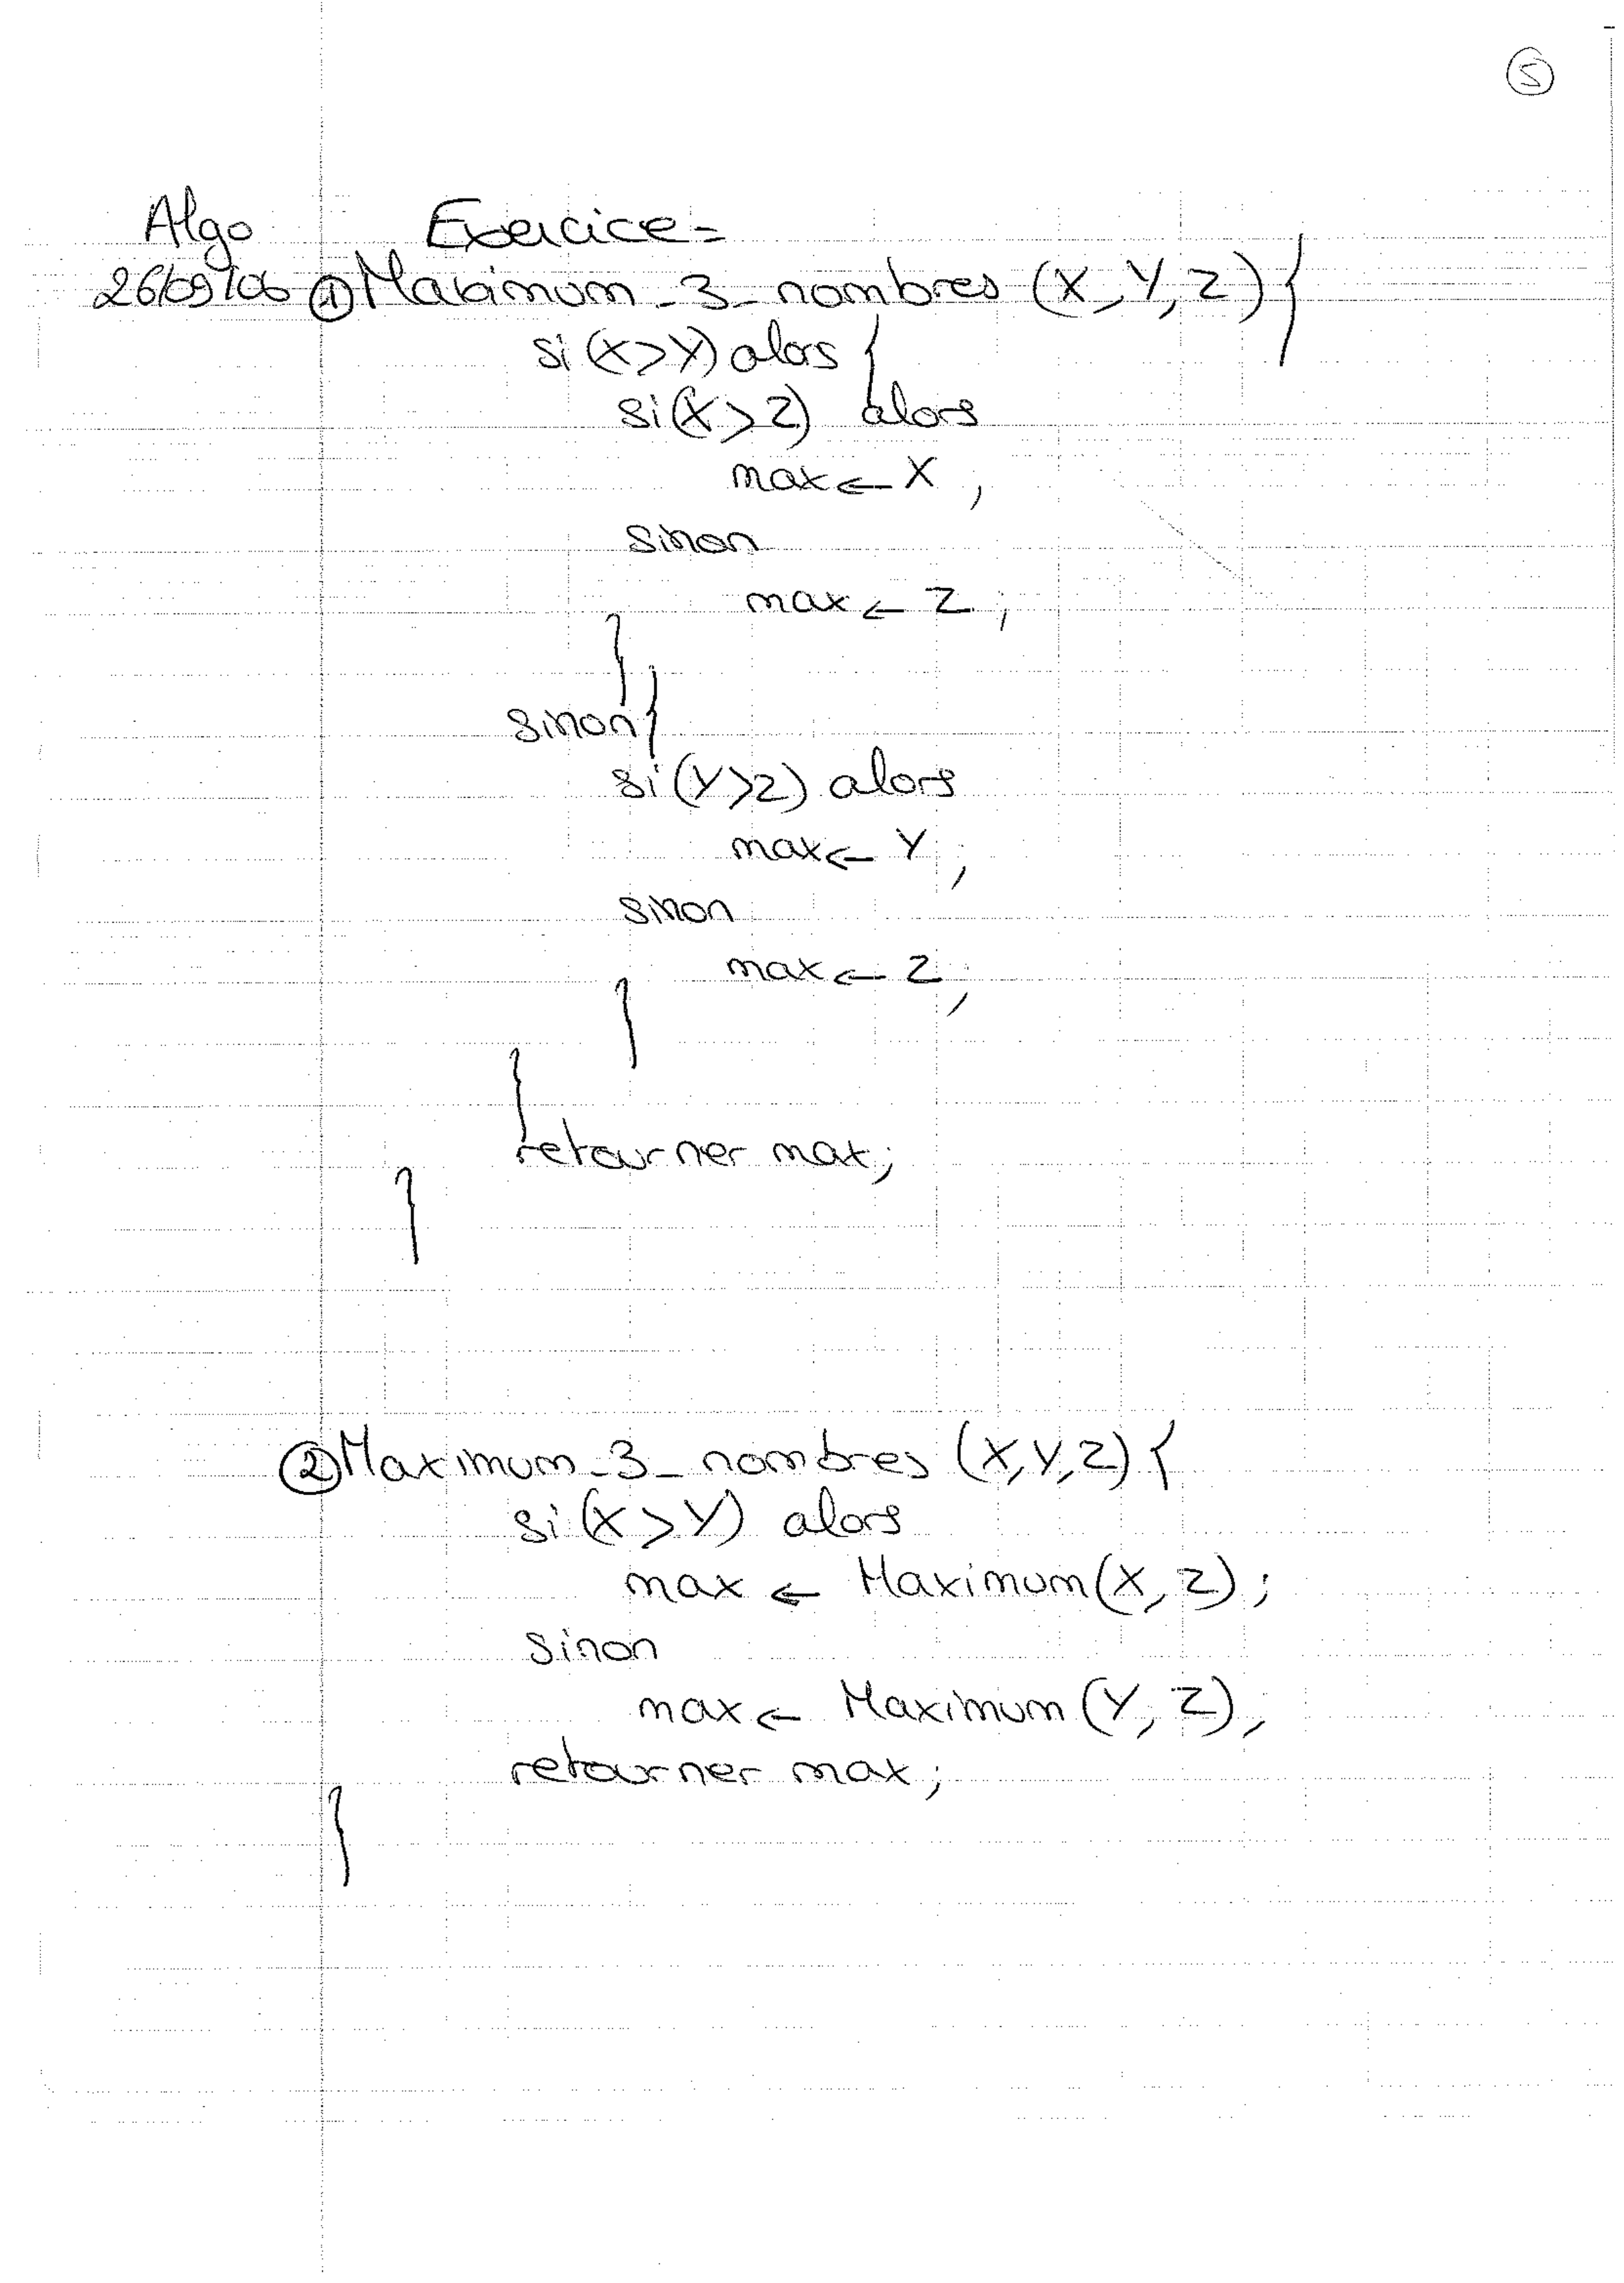 5
Algo Exercice=
26/09/06 ① Maximum_3_nombres (X, Y, Z) {
si (X > Y) alors {
si (X > Z) alors
max ← X ;
sinon
max ← Z ;
}
sinon {
si (Y > Z) alors
max ← Y ;
sinon
max ← Z ;
}
}
retourner max ;
}
② Maximum_3_nombres (X, Y, Z) {
si (X > Y) alors
max ← Maximum (X, Z) ;
sinon
max ← Maximum (Y, Z) ;
retourner max ;
}